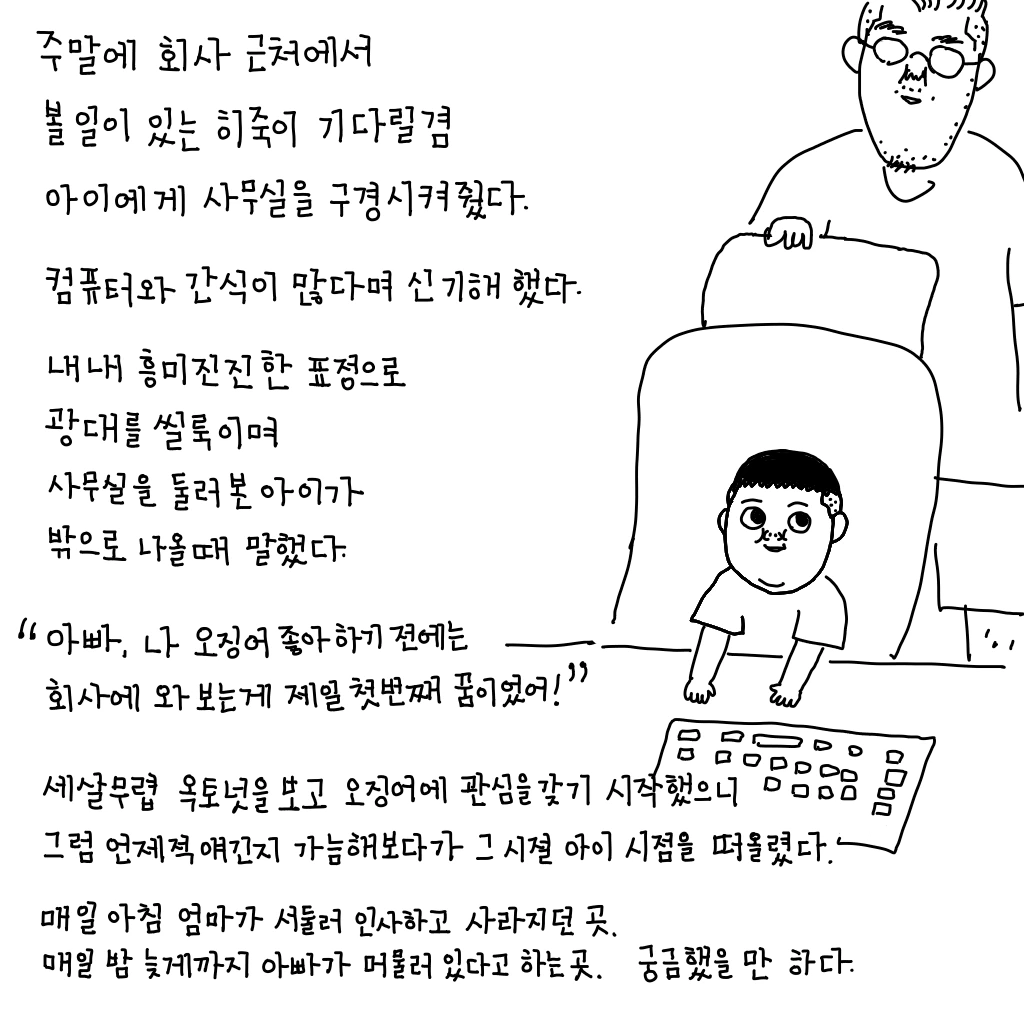 주말에 회사 근처에서
볼일이 있는 히죽이 기다릴겸
아이에게 사무실을 구경시켜줬다.
컴퓨터와 간식이 많다며 신기해 했다.
내내 흥미진진한 표정으로
광대를 씰룩이며
사무실을 둘러본 아이가
밖으로 나올때 말했다.
“아빠, 나 오징어 좋아하기 전에는
회사에 와 보는게 제일 첫번째 꿈이었어!”
세살무렵 옥토넛을 보고 오징어에 관심을 갖기 시작했으니
그럼 언제적 얘긴지 가늠해보다가 그 시절 아이 시점을 떠올렸다.
매일 아침 엄마가 서둘러 인사하고 사라지던 곳.
매일 밤 늦게까지 아빠가 머물러 있다고 하는 곳. 궁금했을 만 하다.